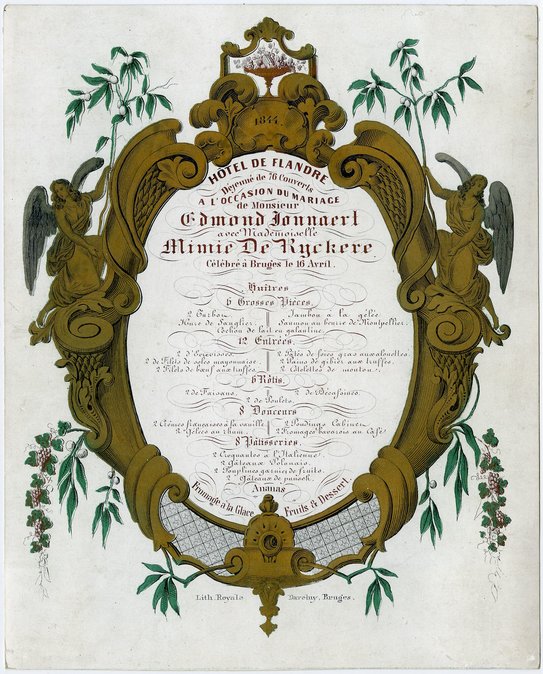 1844.
HÔTEL DE FLANDRE
Déjeuné de 76 Couverts
A L'OCCASION DU MARIAGE
de Monsieur
Edmond Jonnaert
avec Mademoiselle
Mimie De Ryckere
Célébré à Bruges le 16 Avril.
Huîtres
6 Grosses Pièces.
2 Turbon. Jambon à la gélée.
Hure de Sanglier. Saumon au beurre de Montpellier.
Cochon de lait en galantine.
12 Entrées
2 d'Ecrevisses. 2 Patés de foies gras aux alouettes.
2 de Filets de soles mayonnaise. 2 Pains de gibier aux truffes.
2 Filets de bœuf aux truffes. 2 Côtelettes de mouton.
6 Rôtis.
2 de Faisans. 2 de Bécassines.
2 de Poulets.
8 Douceurs
2 Crêmes françaises à la vanille. 2 Poudings Cabinet.
2 Gelées au rhum. 2 Fromages bavarois au Café.
8 Pâtisseries.
2 Croquantes à l'Italienne.
2 Gâteaux Polonais.
2 Touplines garnies de fruits.
2 Gâteaux de punsch.
Ananas
Fromage à la Glace Fruits & Dessert.
Lith. Royale Daveluy, Bruges.